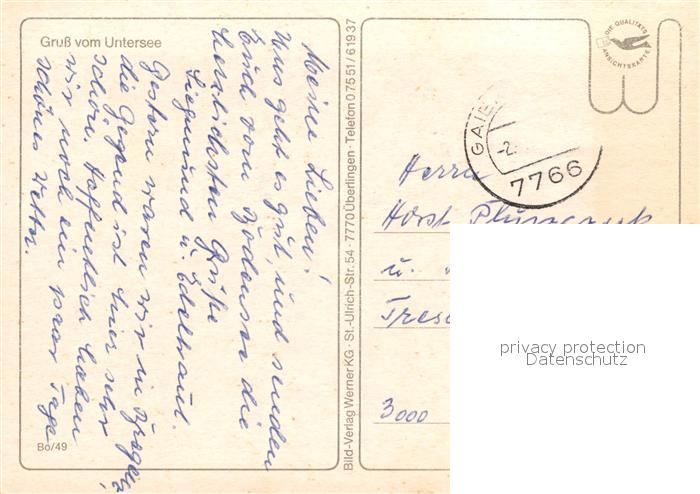 Gruß vom Untersee
Meine Lieben!
Uns geht es gut und senden
Euch vom Bodensee die
herzlichsten Grüße
Siegmund u. Edeltraud.
Gestern waren wir in Bregenz,
die Gegend ist hier sehr
schön. Hoffentlich haben
wir noch ein paar Tage
schönes Wetter.
Bo/49
Bild-Verlag Werner KG · St.-Ulrich-Str. 54 · 7770 Überlingen · Telefon 07551/61937
DIE QUALITÄTS
ANSICHTSKARTE
GAIE
-2.
7766
Herrn
Horst
u.
Tres
3000
privacy protection
Datenschutz